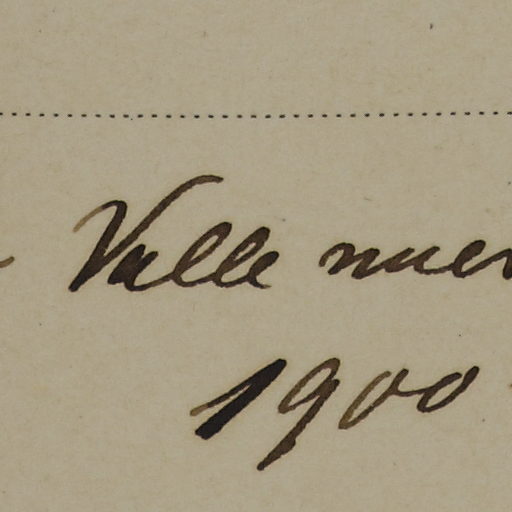 Valle nuev
1900